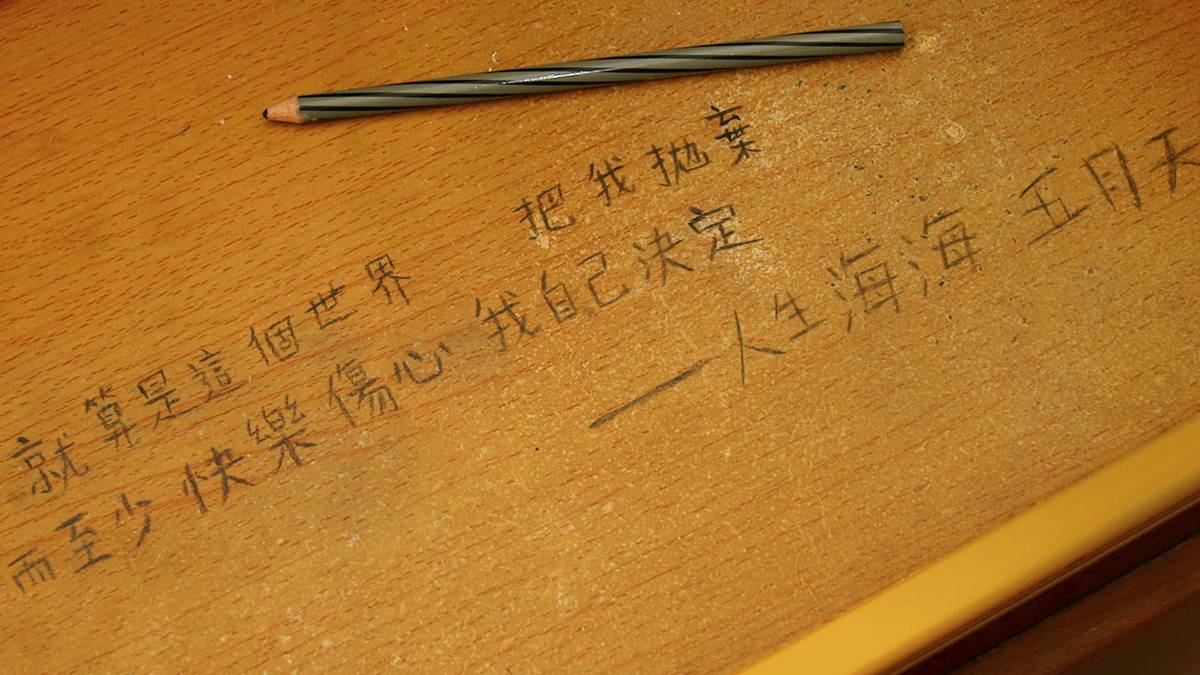 就算是這個世界 把我拋棄
而至少快樂傷心我自己決定
—人生海海 五月天